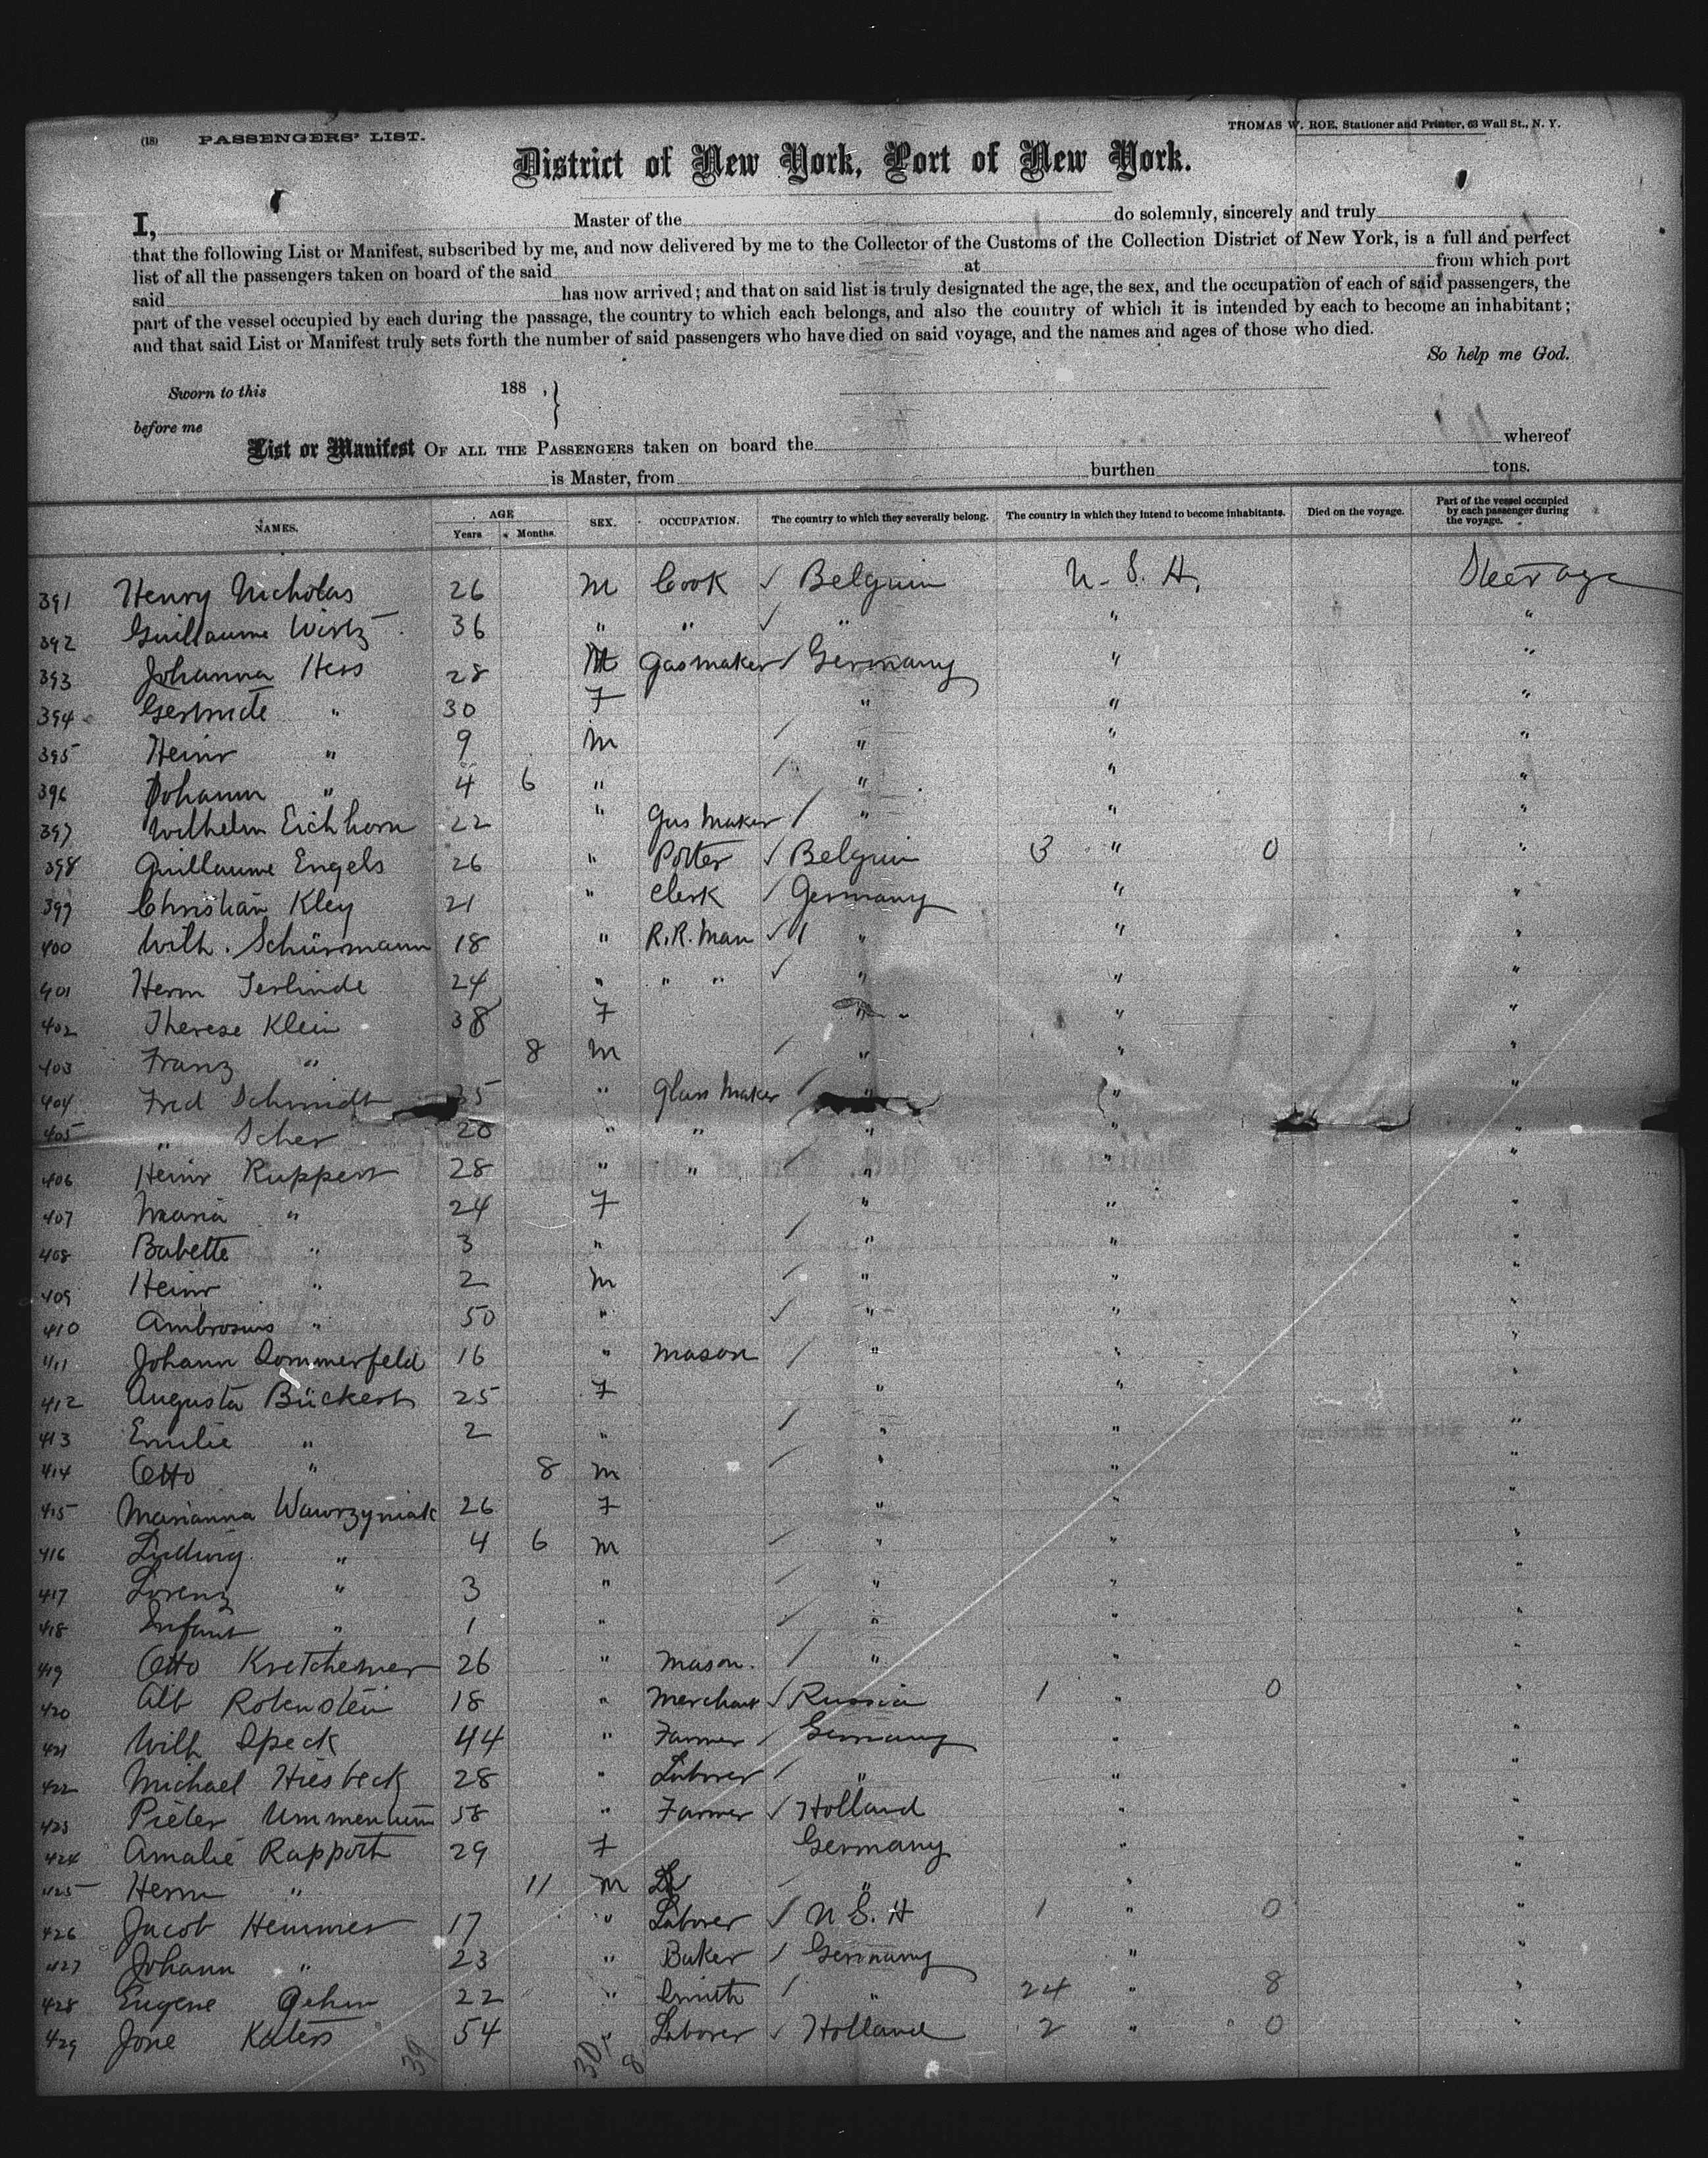 (18) PASSENGERS' LIST.
THOMAS W. ROE, Stationer and Printer, 63 Wall St., N. Y.
District of New York, Port of New York.
I, Master of the do solemnly, sincerely and truly
that the following List or Manifest, subscribed by me, and now delivered by me to the Collector of the Customs of the Collection District of New York, is a full and perfect
list of all the passengers taken on board of the said at from which port
said has now arrived; and that on said list is truly designated the age, the sex, and the occupation of each of said passengers, the
part of the vessel occupied by each during the passage, the country to which each belongs, and also the country of which it is intended by each to become an inhabitant;
and that said List or Manifest truly sets forth the number of said passengers who have died on said voyage, and the names and ages of those who died.
So help me God.
Sworn to this 188 , }
before me
List or Manifest OF ALL THE PASSENGERS taken on board the whereof
is Master, from burthen tons.
NAMES. AGE Years Months. SEX. OCCUPATION. The country to which they severally belong. The country in which they intend to become inhabitants. Died on the voyage. Part of the vessel occupied by each passenger during the voyage.
391 Henry Nicholas 26 M Cook ✓ Belguim U. S. A. Steerage
392 Guillaume Wirtz 36 " " ✓ " " "
393 Johanna Hess 28 M Gasmaker / Germany " "
394 Gertrude " 30 F " " "
395 Heinr " 9 M / " " "
396 Johann " 4 6 " / " " "
397 Wilhelm Eichhorn 22 " Gas Maker / " " "
398 Guillaume Engels 26 " Potter ✓ Belguim 3 " 0 "
399 Christian Kley 21 " Clerk / Germany " "
400 Wilh. Schürmann 18 " R.R. Man ✓ / " " "
401 Herm Terlinde 24 " " " ✓ " " "
402 Therese Klein 38 F " " "
403 Franz " 8 M / " " "
404 Fred Schmidt 35 " Glass Maker / " " "
405 " Scher 20 " " " " "
406 Heinr Ruppert 28 " " / " " "
407 Maria " 24 F " " "
408 Babette " 3 " / " " "
409 Heinr " 2 M / " " "
410 Ambrosius " 50 " ✓ " " "
411 Johann Sommerfeld 16 " Mason / " " "
412 Augusta Bückert 25 F " " "
413 Emilie " 2 " / " " "
414 Otto " 8 M / " " "
415 Marianna Wawrzyniak 26 F " " "
416 Ludwig " 4 6 M / " " "
417 Lorenz " 3 " / " " "
418 Infant " 1 " / " " "
419 Otto Kretchemer 26 " Mason. / " " "
420 Alb Rotenstein 18 " Merchant ✓ Russia 1 " 0 "
421 Wilh Speck 44 " Farmer / Germany " "
422 Michael Hiesbeck 28 " Laborer / " " "
423 Pieter 58 " Farmer ✓ Holland " "
424 Amalie Rapport 29 F Germany " "
425 Herm " 11 M / " " "
426 Jacob Hemmer 17 " Laborer ✓ U S. A 1 " 0 "
427 Johann " 23 " Baker / Germany " "
428 Eugene Oehm 22 " Smith / " 24 " 8 "
429 Jone Katers 54 " Laborer ✓ Holland 2 " 0 "
39 30 8